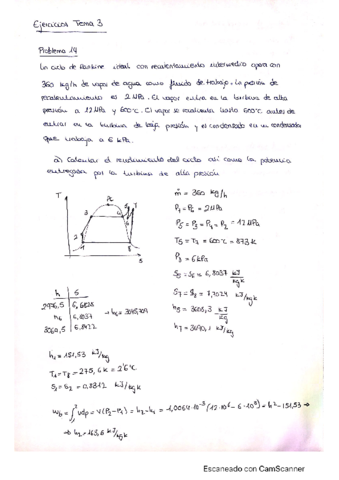 Ejercicios Tema 3
Problema 14
Un ciclo de Rankine ideal con recalentamiento intermedio opera con
360 kg/h de vapor de agua como fluido de trabajo. La presión de
recalentamiento es 2 MPa. El vapor entra en la turbina de alta
presión a 12 MPa y 600°C. El vapor se recalienta hasta 600°C antes de
entrar en la turbina de baja presión y es condensado en un condensador
que trabaja a 6 kPa.
a) Calcular el rendimiento del ciclo así como la potencia
entregada por la turbina de alta presión
ṁ = 360 kg/h
= 2MPa
= 12MPa
= 600°C = 873 K
= 6 kPa
T
PC
s
S5 = S6 = 6,8037 kJ/kg
S7 = S8 = 7,7024 kJ/kg
h5 = 3608,3 kJ/kg
h7 = 3690,1 kJ/kg
h | S
h6 | 6,8037
h1 = 151,53 kJ/kg
S1 = S2 = 0,8312 kJ/kg K
= v(P2-P1) = h2-h1 = 1,0064·10⁻³ (12·10⁶ - 6·10³) = h2 - 151,53 →
→ h2 = 163,6 kJ/kg
Escaneado con CamScanner